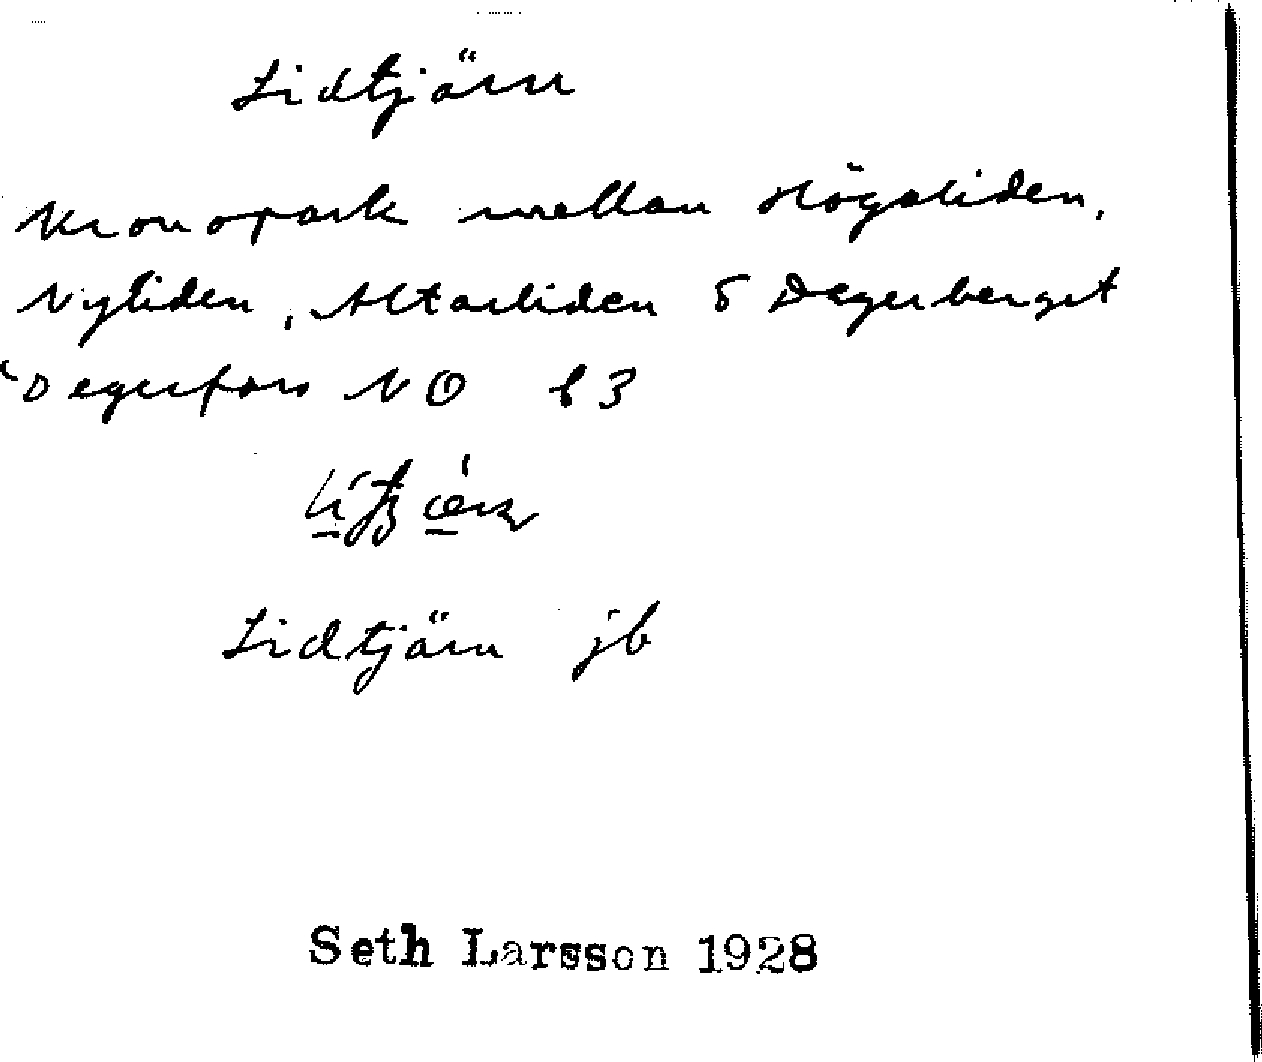 Lidtjärn
Kronopark mellan Högaliden,
Nyliden, Altarliden o Degerberget
Degerfors NO b3
Lidtjärn jb
Seth Larsson 1928